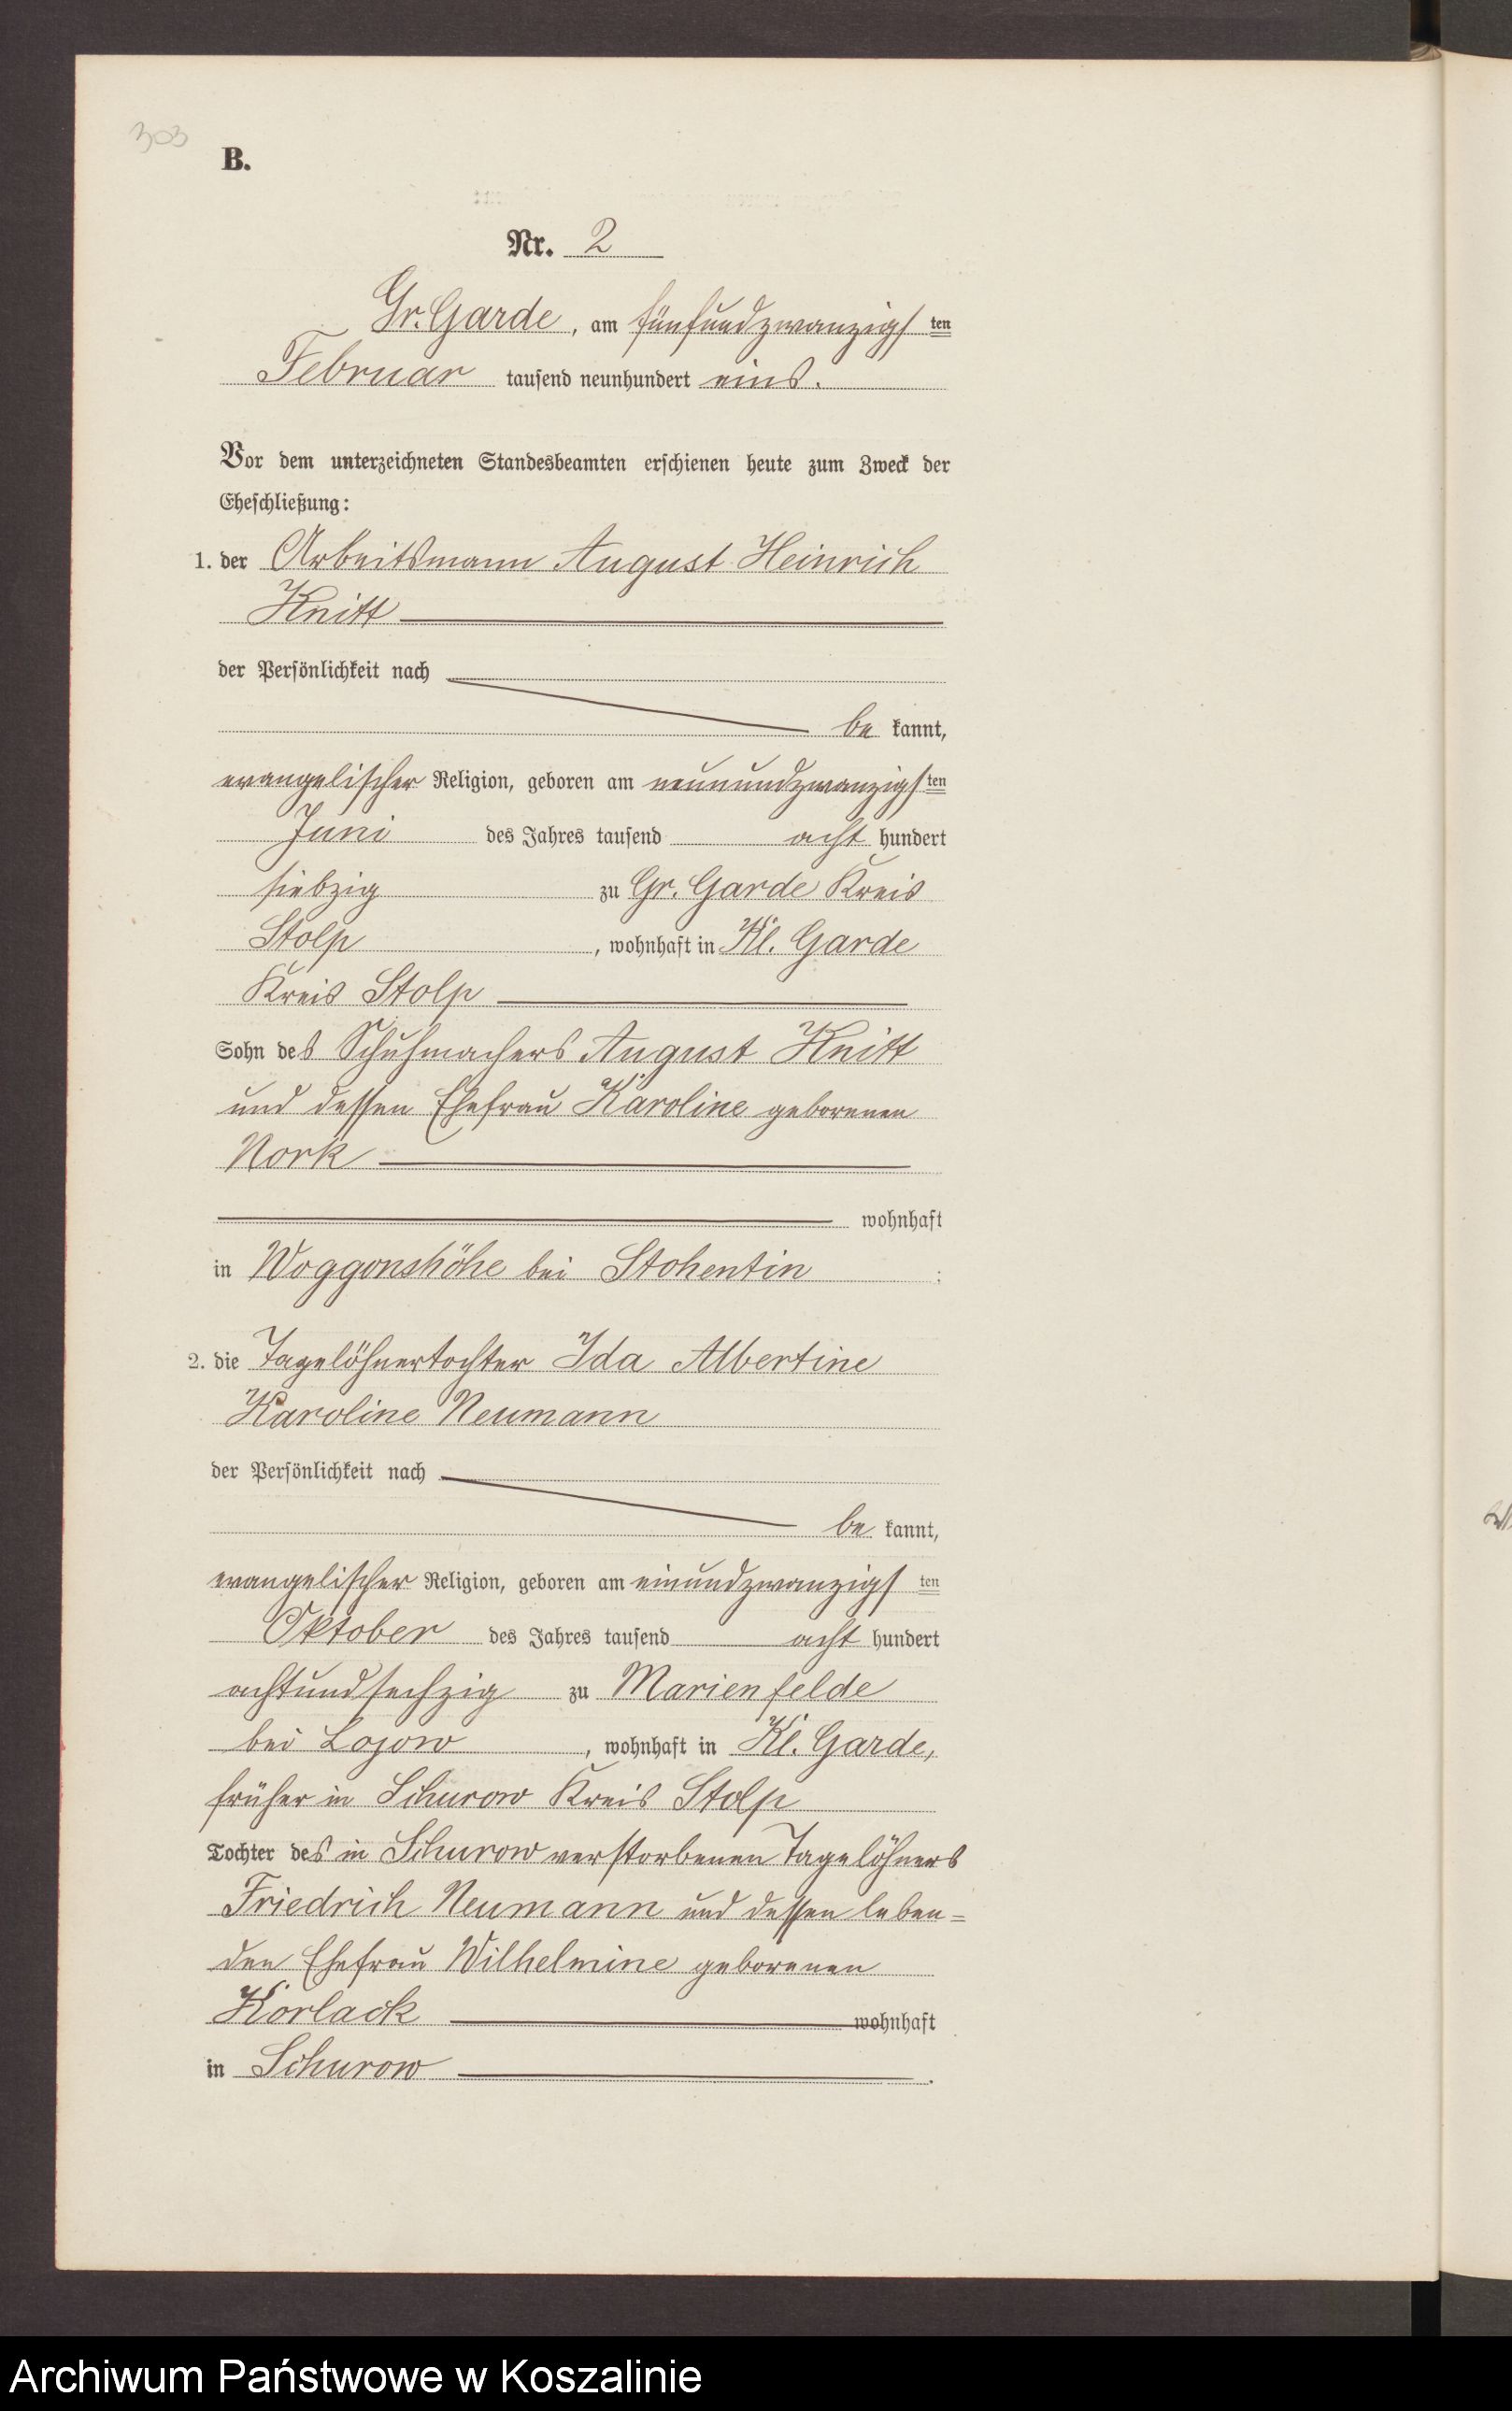 303
B.
Nr. 2
Gr. Garde, am fünfundzwanzigsten
Februar tausend neunhundert eins.
Vor dem unterzeichneten Standesbeamten erschienen heute zum Zweck der
Eheschließung:
1. der Arbeitsmann August Heinrich
Knitt
der Persönlichkeit nach
be kannt,
evangelischer Religion, geboren am neunundzwanzigsten
Juni des Jahres tausend acht hundert
siebzig zu Gr. Garde Kreis
Stolp, wohnhaft in Kl. Garde
Kreis Stolp
Sohn des Schuhmachers August Knitt
und dessen Ehefrau Karoline geborenen
Nork
wohnhaft
in Woggonshöhe bei Stohentin ;
2. die Tagelöhnertochter Ida Albertine
Karoline Neumann
der Persönlichkeit nach
be kannt,
evangelischer Religion, geboren am einundzwanzigsten
Oktober des Jahres tausend acht hundert
achtundsechzig zu Marienfelde
bei Lojow, wohnhaft in Kl. Garde,
früher in Schurow Kreis Stolp
Tochter des in Schurow verstorbenen Tagelöhners
Friedrich Neumann und dessen leben=
den Ehefrau Wilhelmine geborenen
Korlack wohnhaft
in Schurow.
Archiwum Państwowe w Koszalinie